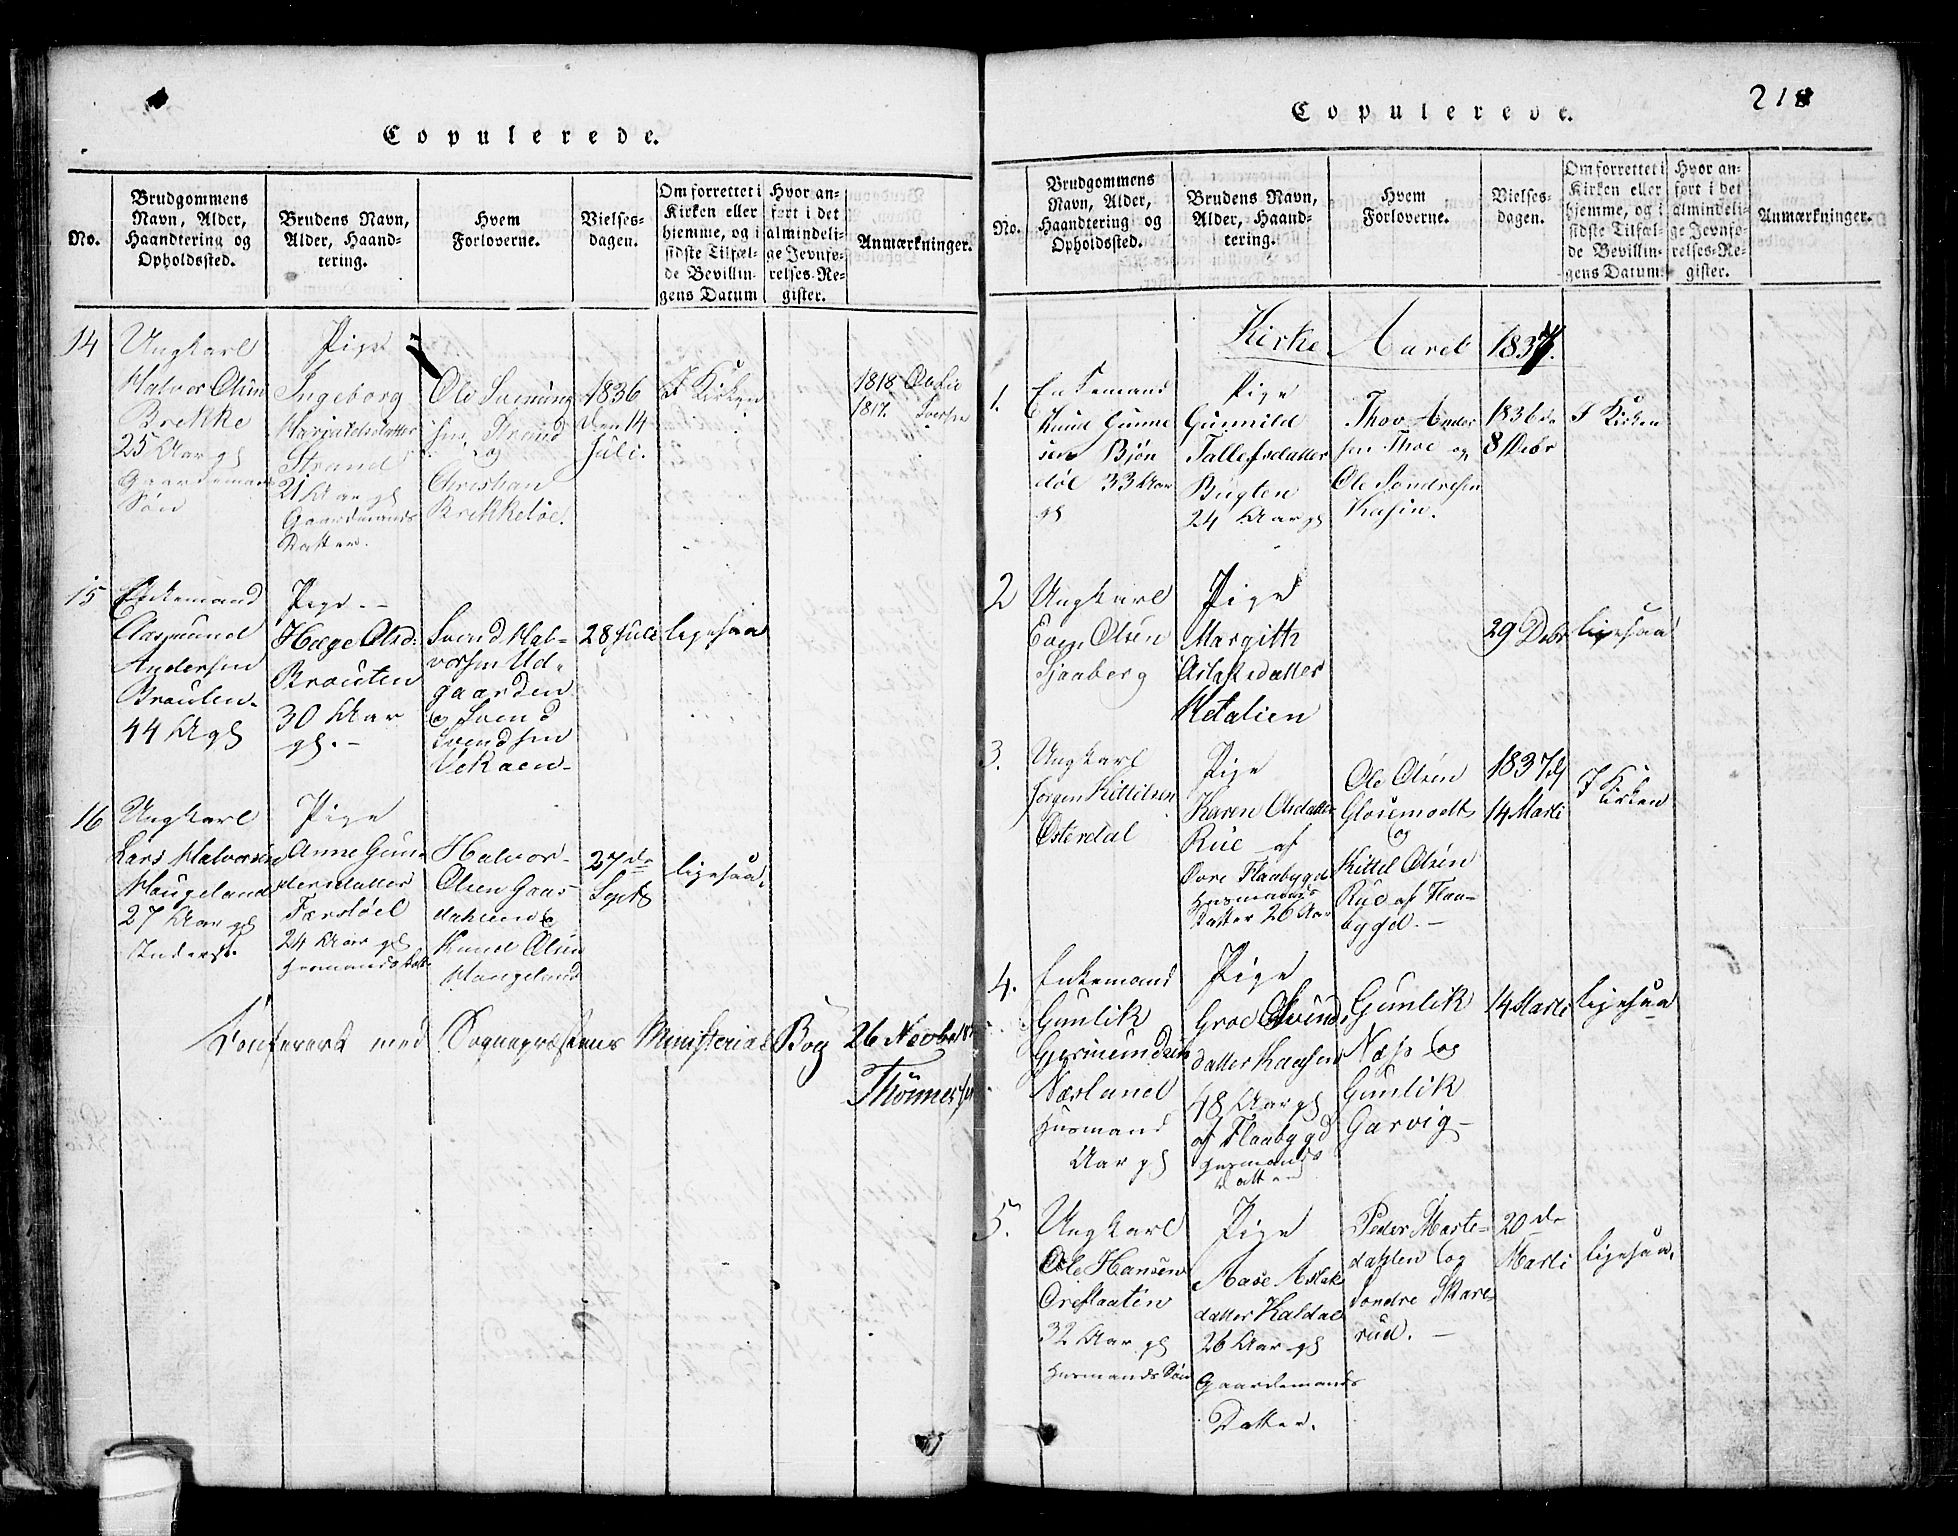 Copulerede.
No.
Brudgommens
Navn, Alder,
Haandtering og
Opholdssted.
Brudens Navn,
Alder, Haand-
tering.
Hvem
Forloverne.
Vielses-
dagen.
Om forrettet i
Kirken eller
hjemme, og i
sidste Tilfæl-
de Bevillin-
gens Datum
Hvor an-
ført i det
almindeli-
ge Jevnfø-
relses-Re-
gister.
Anmærkninger.
14
Ungkarl
Halvor Olsen
Brekke
25 Aar gl
Gaardemands
Søn
Pige
Ingeborg
Harjaldsdatter
Strand
21 Aar gl
Gaardmands
Datter.
Ole Sveinung
sen Strand
og
Christian
Brekketøe.
1836
den 14
Juli.
I Kirken
1818
1817.
15
Enkemand
Aasmund
Andersen
Brauten.
44 A gl
Pige --
Hæge Olsd:
Brauten
30 Aar
gl. -
Svend Hal-
vorsen Ud-
gaarden
og Svend
Svendsen
Vekaen-
28 Juli
ligesaa
16
Ungkarl
Lars Halvorsen
Haugeland
27 Aar gl
Inderst.
Pige
Anne Gun-
dersdatter
Færstøel
24 Aar gl
Husmands Datt.
Halvor
Olsen Gaas-
dahlen &
Knud Olsen
Haugeland
27 de
Septb
ligesaa.
Confereret med Sognepræstens Ministerial Bog 26 Novbr
Copulerede.
218
No.
Brudgommens
Navn, Alder,
Haandtering og
Opholdssted.
Brudens Navn,
Alder, Haand-
tering.
Hvem
Forloverne.
Vielses-
dagen.
Om forrettet i
Kirken eller
hjemme, og i
sidste Tilfæl-
de Bevillin-
gens Datum
Hvor an-
ført i det
almindeli-
ge Jevnfø-
relses-Re-
gister.
Anmærkninger.
Kirke Aaret 1837.
1.
Enkemand
Knud Gunne
sen Bjøn
døl 33 Aar
gl
Pige
Gunnild
Tallefsdatter
Bugten
24 Aar gl
Thov Ander
sen Thoe og
Ole Sondresen
Kasin.
1836 de
8 Debr
I Kirken
2
Ungkarl
Even Olsen
Sjaaberg
Pige
Margith
Aslaksdatter
Ketalien
29 Debr
ligesaa
3.
Ungkarl
Jørgen Kittilsen
Østerdal
Pige
Karen Olsdatter
Rue af
Øvre Flaabygd
Husmands
Datter 26 Aar
Ole Olsen
Glosemodt
og
Kittel Olsen
Rue af Flaa-
bygd. -
1837 d
14 Marti
I Kirken
4.
Enkemand
Gunlik
Gjermundsen
Næsland
Husmand
Aar gl
Pige
Groe Svends
datter Kaasen
48 Aar gl
af Flaabygd
Husmands
Datter
Gunlik
Næs og
Gunlik
Garvig-
14 Marti
ligesaa
5.
Ungkarl
Ole Hansen
Oreflaaten
32 Aar gl
Husmands Søn
Pige
Aase Aslaks
datter Kaldal
26 Aar gl
Gaardemands
Datter.
Peder Marte-
dahlen og
Sondre Skare
rud. -
20 de
Marti
ligesaa.